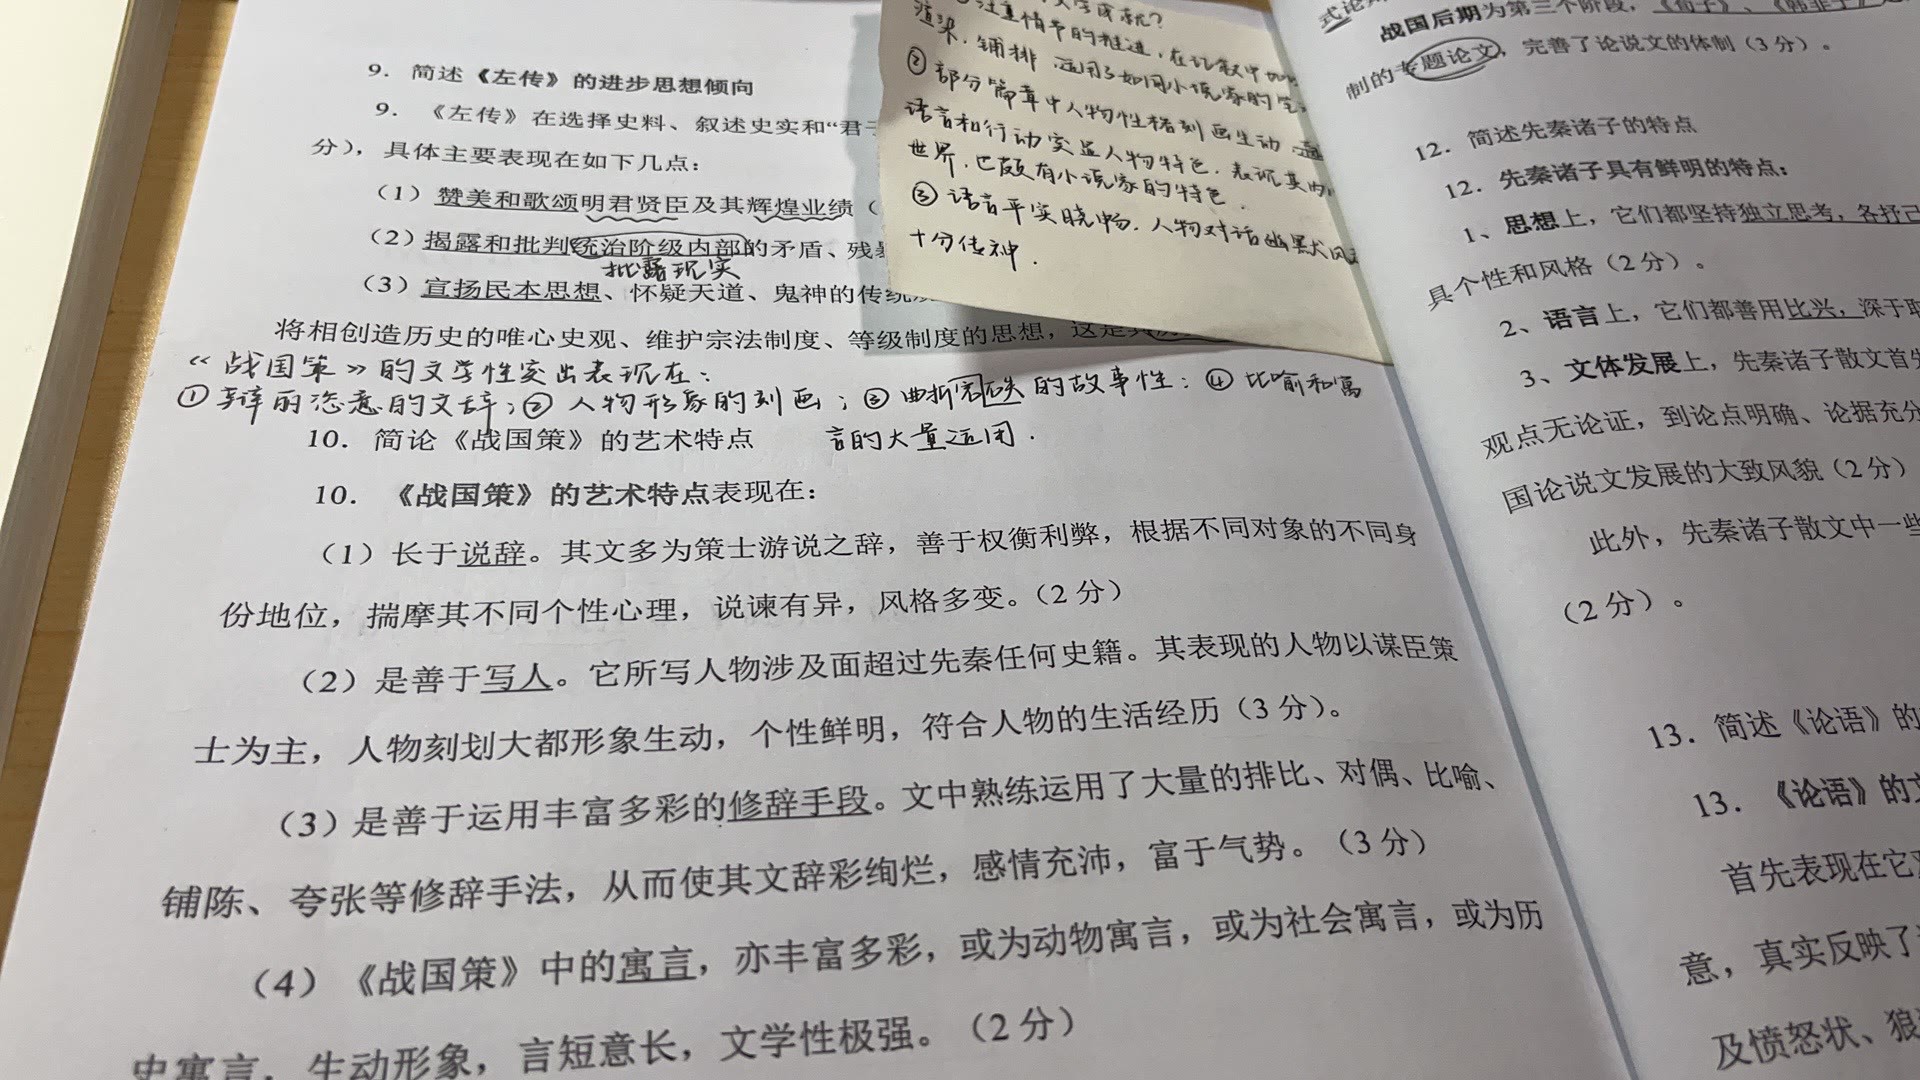 9. 简述《左传》的进步思想倾向
9. 《左传》在选择史料、叙述史实和“君子
分），具体主要表现在如下几点：
（1）赞美和歌颂明君贤臣及其辉煌业绩（
（2）揭露和批判统治阶级内部的矛盾、残暴
批露现实
（3）宣扬民本思想、怀疑天道、鬼神的传统
将相创造历史的唯心史观、维护宗法制度、等级制度的思想，这是其
《战国策》的文学性突出表现在：
①辩丽恣意的文辞；②人物形象的刻画；③曲折宕跌的故事性；④比喻和寓
言的大量运用．
10. 简论《战国策》的艺术特点
10. 《战国策》的艺术特点表现在：
（1）长于说辞。其文多为策士游说之辞，善于权衡利弊，根据不同对象的不同身
份地位，揣摩其不同个性心理，说谏有异，风格多变。（2 分）
（2）是善于写人。它所写人物涉及面超过先秦任何史籍。其表现的人物以谋臣策
士为主，人物刻划大都形象生动，个性鲜明，符合人物的生活经历（3 分）。
（3）是善于运用丰富多彩的修辞手段。文中熟练运用了大量的排比、对偶、比喻、
铺陈、夸张等修辞手法，从而使其文辞彩绚烂，感情充沛，富于气势。（3 分）
（4）《战国策》中的寓言，亦丰富多彩，或为动物寓言，或为社会寓言，或为历
史寓言，生动形象，言短意长，文学性极强。（2 分）
文学成就？
注重情节的推进，在记叙中
渲染．铺排．运用了如同小说家的笔
②部分篇章中人物性格刻画生动，通
语言和行动突显人物特色．表现其内
世界．已颇有小说家的特色．
③语言平实晓畅．人物对话幽默风
十分传神．
战国后期为第三个阶段，《荀子》、《韩非子》
制的专题论文，完善了论说文的体制（3 分）。
12. 简述先秦诸子的特点
12. 先秦诸子具有鲜明的特点：
1、思想上，它们都坚持独立思考，各抒己
具个性和风格（2 分）。
2、语言上，它们都善用比兴，深于取
3、文体发展上，先秦诸子散文首先
观点无论证，到论点明确、论据充分
国论说文发展的大致风貌（2 分）
此外，先秦诸子散文中一些
（2 分）。
13. 简述《论语》的
13. 《论语》的文
首先表现在它对
意，真实反映了
及愤怒状、狼